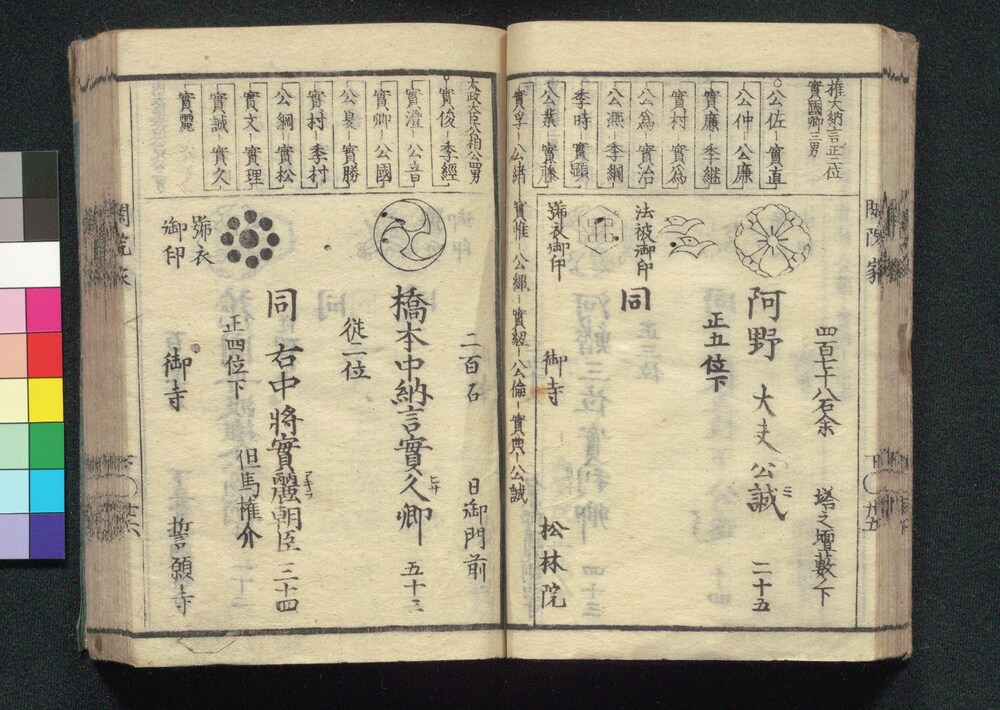 閑院家
權大納言正二位
實國卿三男
公佐 實直
公仲 公廉
實廉 季継
實村 實為
公為 實治
公凞 季綱
季時 實顕
公業 實藤
實孚 公緒
實惟 公縄 實紐 公倫 實典 公誠
四百七十八石余
塔之壇藪ノ下
阿野 大夫公誠 二十五
正五位下
同
法被御印
號衣御印
御寺 松林院
太政大臣公相公四男
實俊 季經
實澄 公音
實卿 公國
公夏 實勝
實村 季村
公綱 實松
實文 實理
實誠 實久
實麗
二百石
日御門前
橋本中納言實久卿 五十三
從二位
同 右中將實麗朝臣 三十四
正四位下 但馬權介
號衣
御印
御寺 誓願寺
閑院家